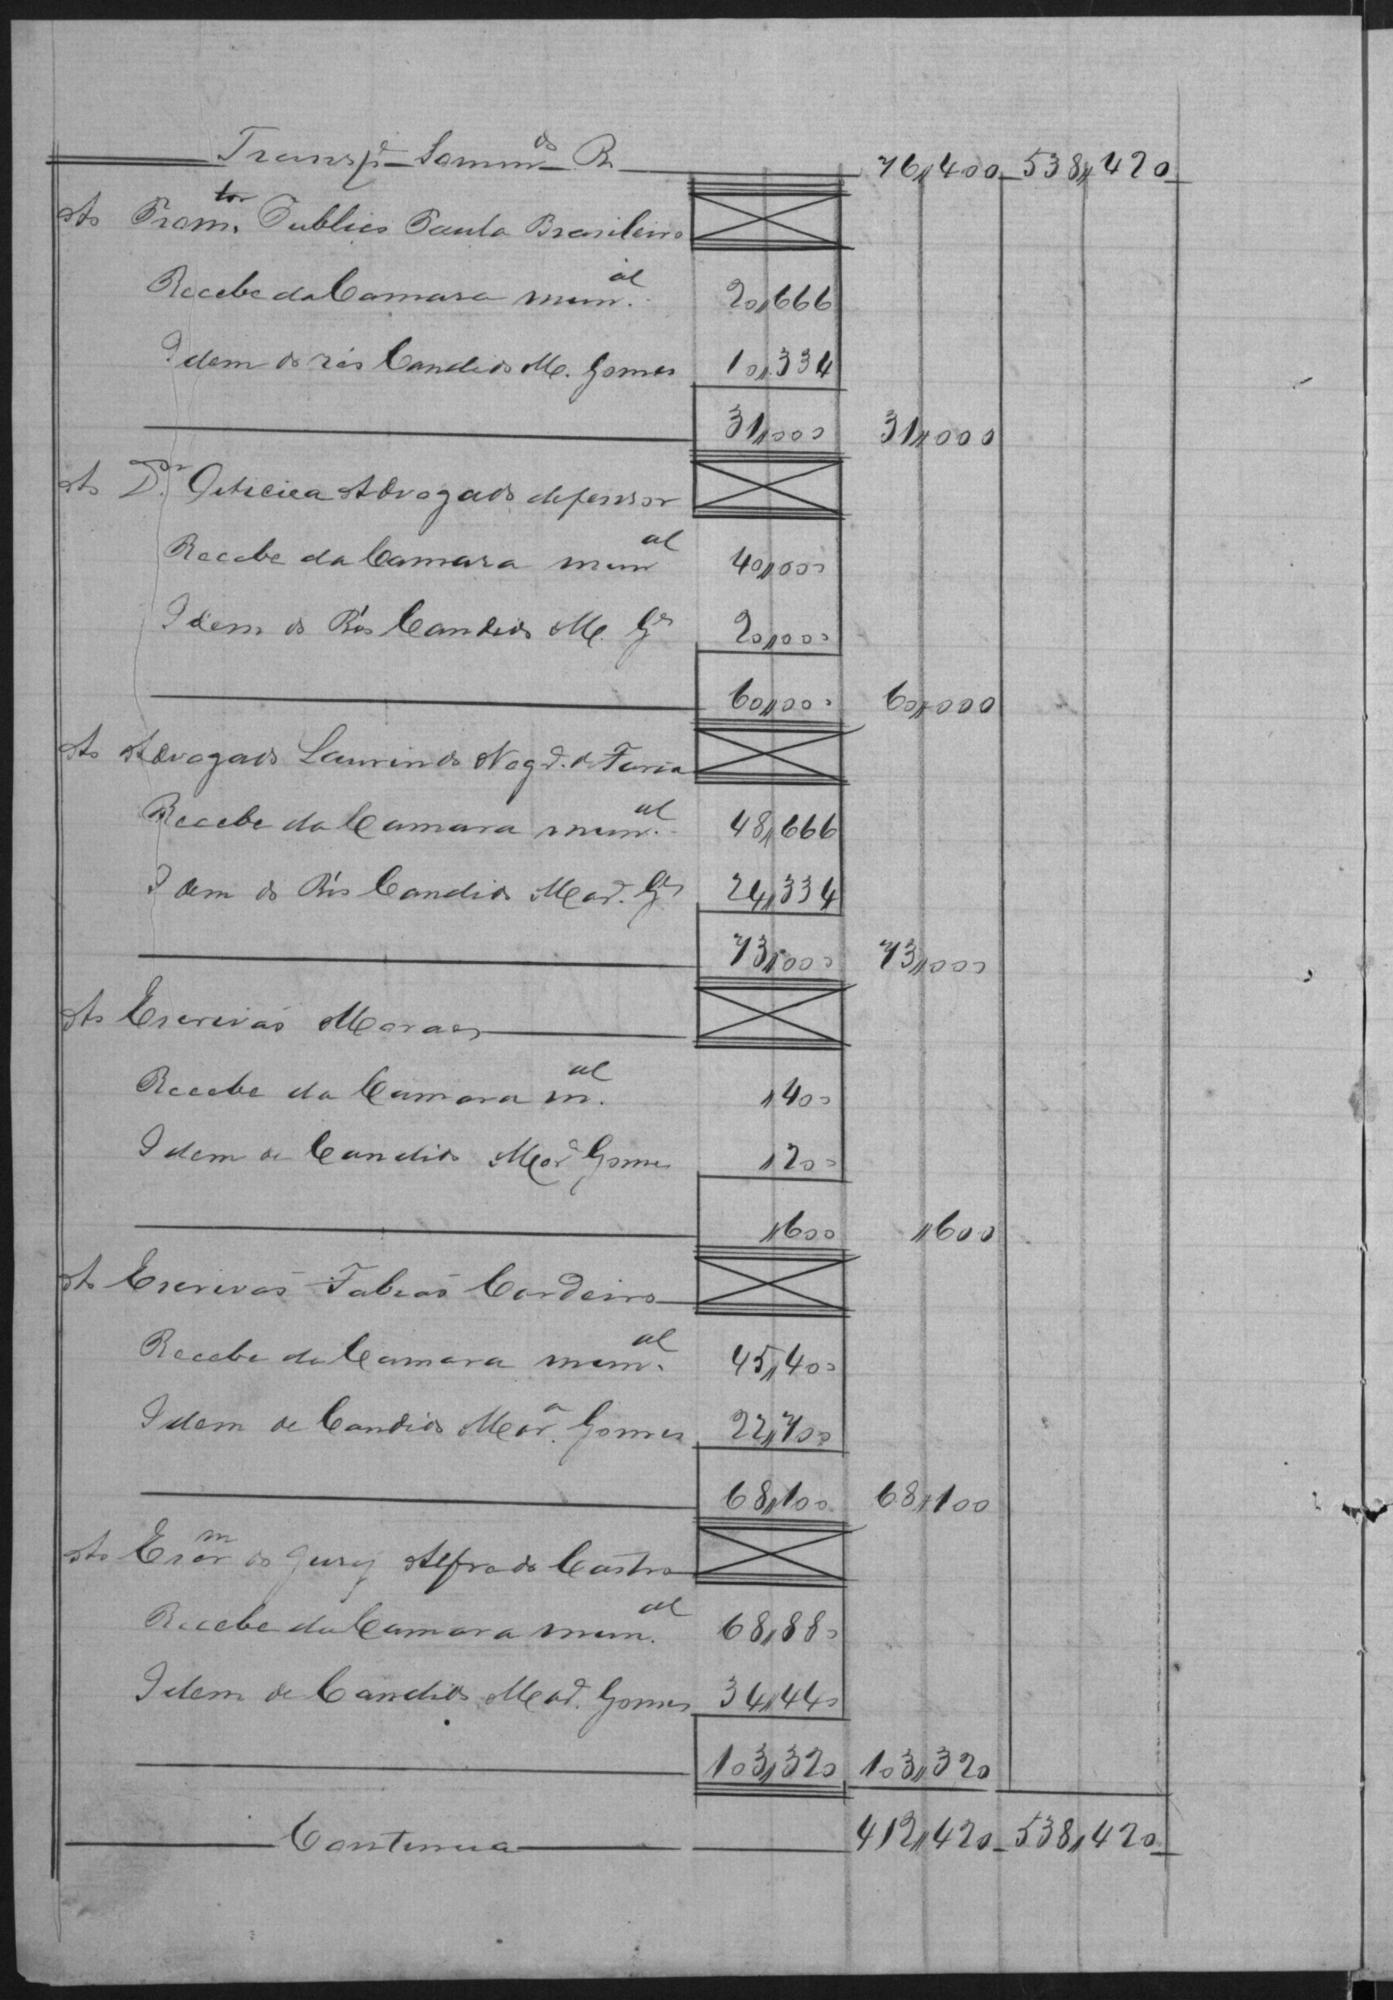 Transp.e Somm.do R. 76,,400 538,,420
Ao Prom.tor Publico Paula Brasileiro
Recebe da Camara mun.al 20,,666
Idem do réo Candido M. Gomes 10,,334
31,,000 31,,000
Ao D.r Oiticica Advogado defensor
Recebe da Camara mun.al 40,,000
Idem do Réo Candido M. G.es 20,,000
60,,000 60,,000
Ao Advogado Laurindo Nog.ra de Faria
Recebe da Camara mun.al 48,,666
Idem do Réo Candido Mar.a G.es 24,,334
73,,000 73,,000
Ao Escrivão Moraes
Recebe da Camara m.al ,,400
Idem de Candido Mar.a Gomes ,,200
,,600 ,,600
Ao Escrivão Fabião Cordeiro
Recebe da Camara mun.al 45,,400
Idem de Candido Mar.a Gomes 22,,700
68,,100 68,,100
Ao Escr.m do Jury Alfredo Castro
Recebe da Camara mun.al 68,,880
Idem de Candido Mar.a Gomes 34,,440
103,,320 103,,320
Continua 412,,420 538,,420